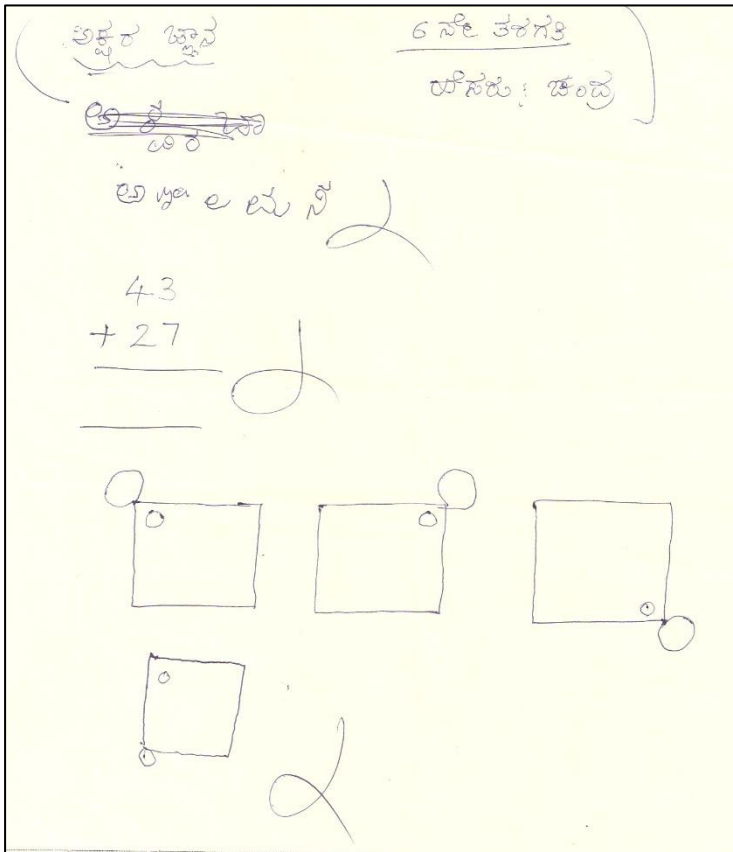 ಅಕ್ಷರ ಜ್ಞಾನ
6 ನೇ ತರಗತಿ
ಹೆಸರು : ಚಂದ್ರ
ಅ
ಲ ಮ ನಿ
43
+ 27